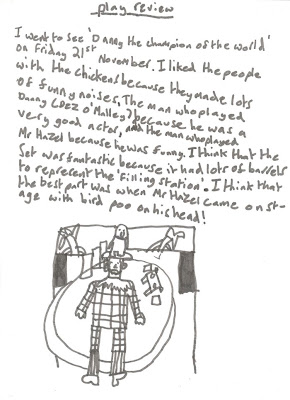 play review
I went to see 'Danny the champion of the world'
on Friday 21st November. I liked the people
with the chickens because they made lots
of funny noises. The man who played
Danny (Dez o'Malley) because he was a
very good actor, and the man who played
Mr Hazel because he was funny. I think that the
Set was fantastic because it had lots of barrels
to represent the 'filling station'. I think that
the best part was when Mr Hazel came on st-
age with bird poo on his head!